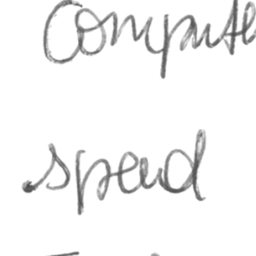 Compute
spend